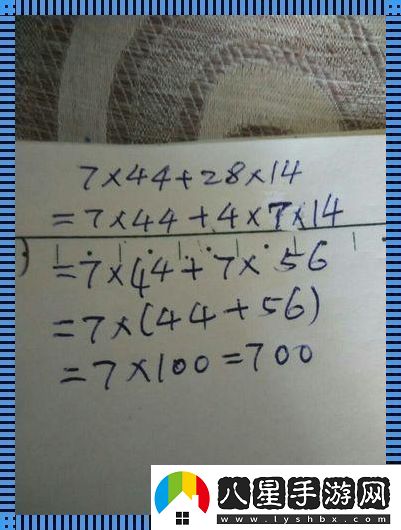 7×44+28×14
=7×44+4×7×14
=7×44+7×56
=7×(44+56)
=7×100=700
八星手游网
www.lyshbx.com